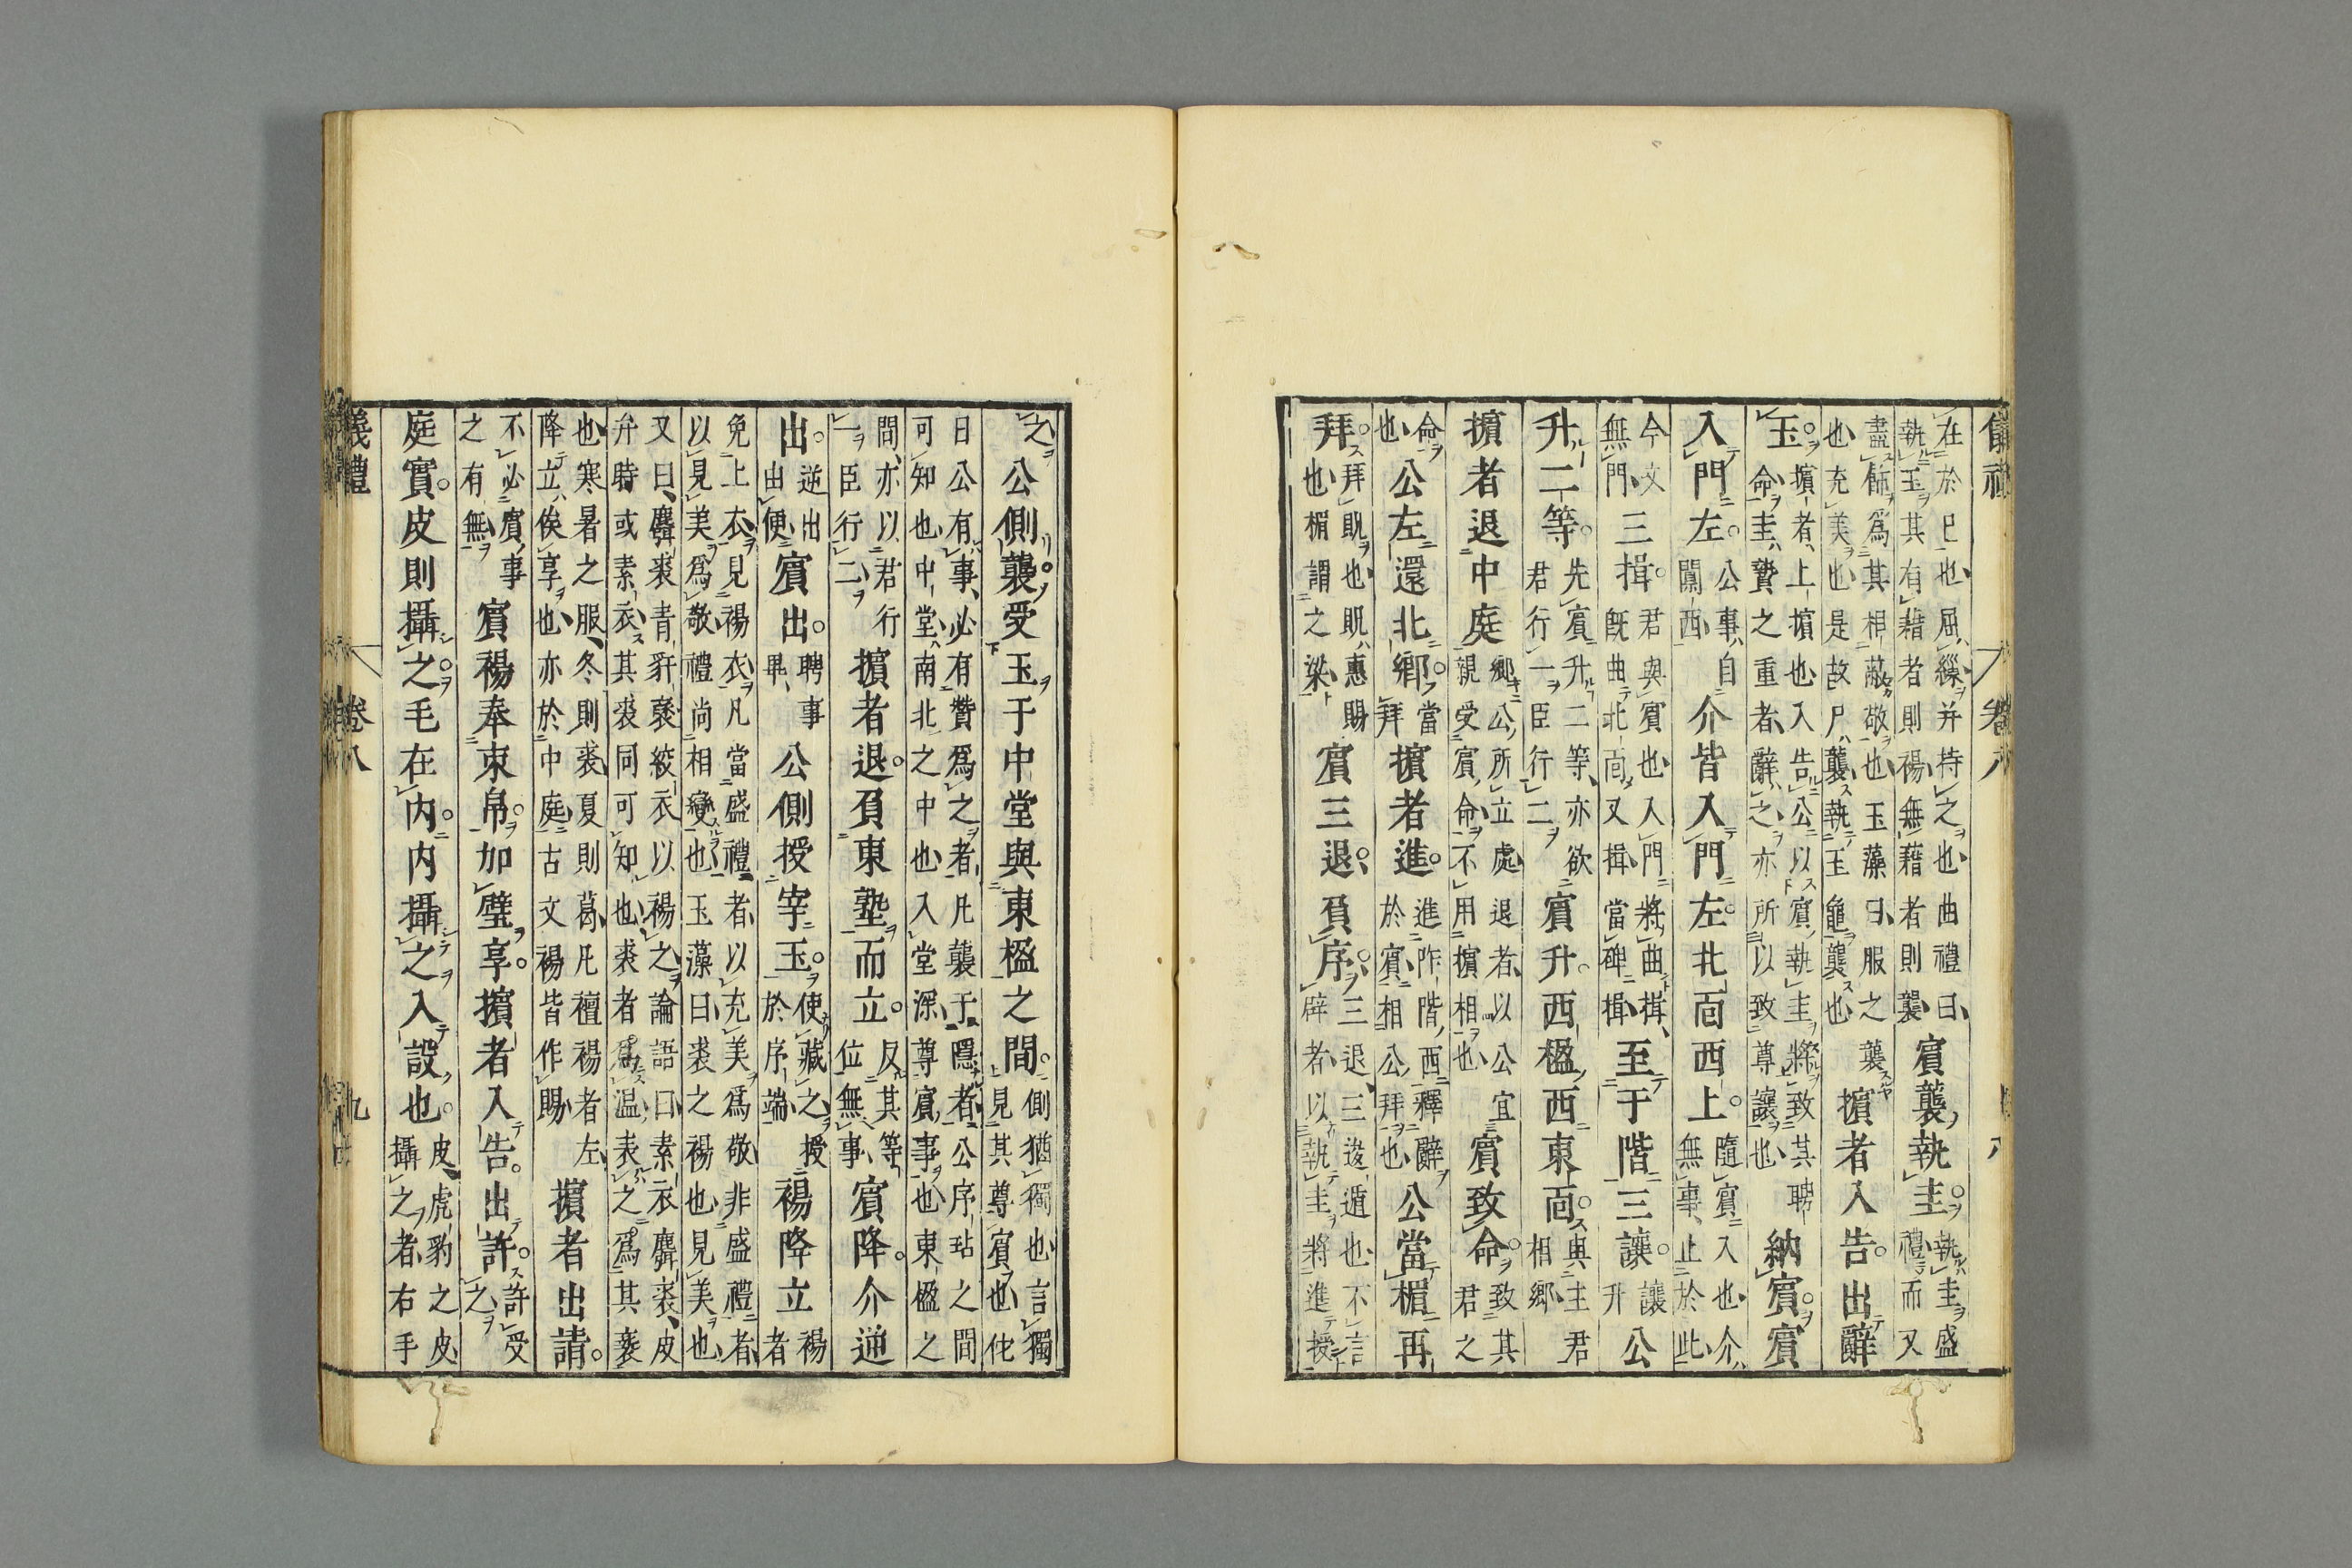 儀禮 卷八 八
在於已也屈繅并持之也曲禮曰
執玉其有藉者則裼無藉者則襲
賓襲執圭。
執圭盛
禮而又
盡飾爲其相蔽敬也玉藻曰服之襲
也充美也是故尸襲執玉龜襲也
擯者入告。出辭
玉。
擯者上擯也入告公以賓執圭將致其聘
命圭贄之重者辭之亦所以致尊讓也
納賓。賓
入門左。
公事自
闑西
介皆入門左。北面西上。
隨賓入也介
無事止於此
今文
無門
三揖。
君與賓也入門將曲揖
既曲北面又揖當碑揖
至于階三讓。
讓
升
公
升二等。
先賓升二等亦欲
君行一臣行二
賓升。西楹西東面。
與主君
相鄉
擯者退中庭
鄉公所立處退者以公宜
親受賓命不用擯相也
賓致命。
致其
君之
命
也
公左還北鄉。
當
拜
擯者進。
進阼階西釋辭
於賓相公拜也
公當楣再
拜。
拜貺也貺惠賜
也楣謂之梁
賓三退。負序。
三退三逡遁也不言
辟者以執圭將進授
之
公側襲。受玉于中堂與東楹之間。
側猶獨也言獨
見其尊賓也佗
日公有事必有贊爲之者凡襲于隱者公序坫之間
可知也中堂南北之中也入堂深尊賓事也東楹之
間亦以君行
一臣行二
擯者退。負東塾而立。
反其等
位無事
賓降。介逆
出。
逆出
由便
賓出。
聘事
畢
公側授宰玉。
使藏之授
於序端
裼降立
裼
者
免上衣見裼衣凡當盛禮者以充美爲敬非盛禮者
以見美爲敬禮尚相變也玉藻曰裘之裼也見美也
又曰麛裘青豻褎絞衣以裼之論語曰素衣麛裘皮
弁時或素衣其裘同可知也裘者爲温表之爲其褻
也寒暑之服冬則裘夏則葛凡襢裼者左
降立俟享也亦於中庭古文裼皆作賜
擯者出請。
不必賓事
之有無
賓裼奉束帛。加璧享。擯者入告。出許。
許受
之
庭實。皮則攝之。毛在内。内攝之入設也。
皮虎豹之皮
攝之者右手
儀禮 卷八 九